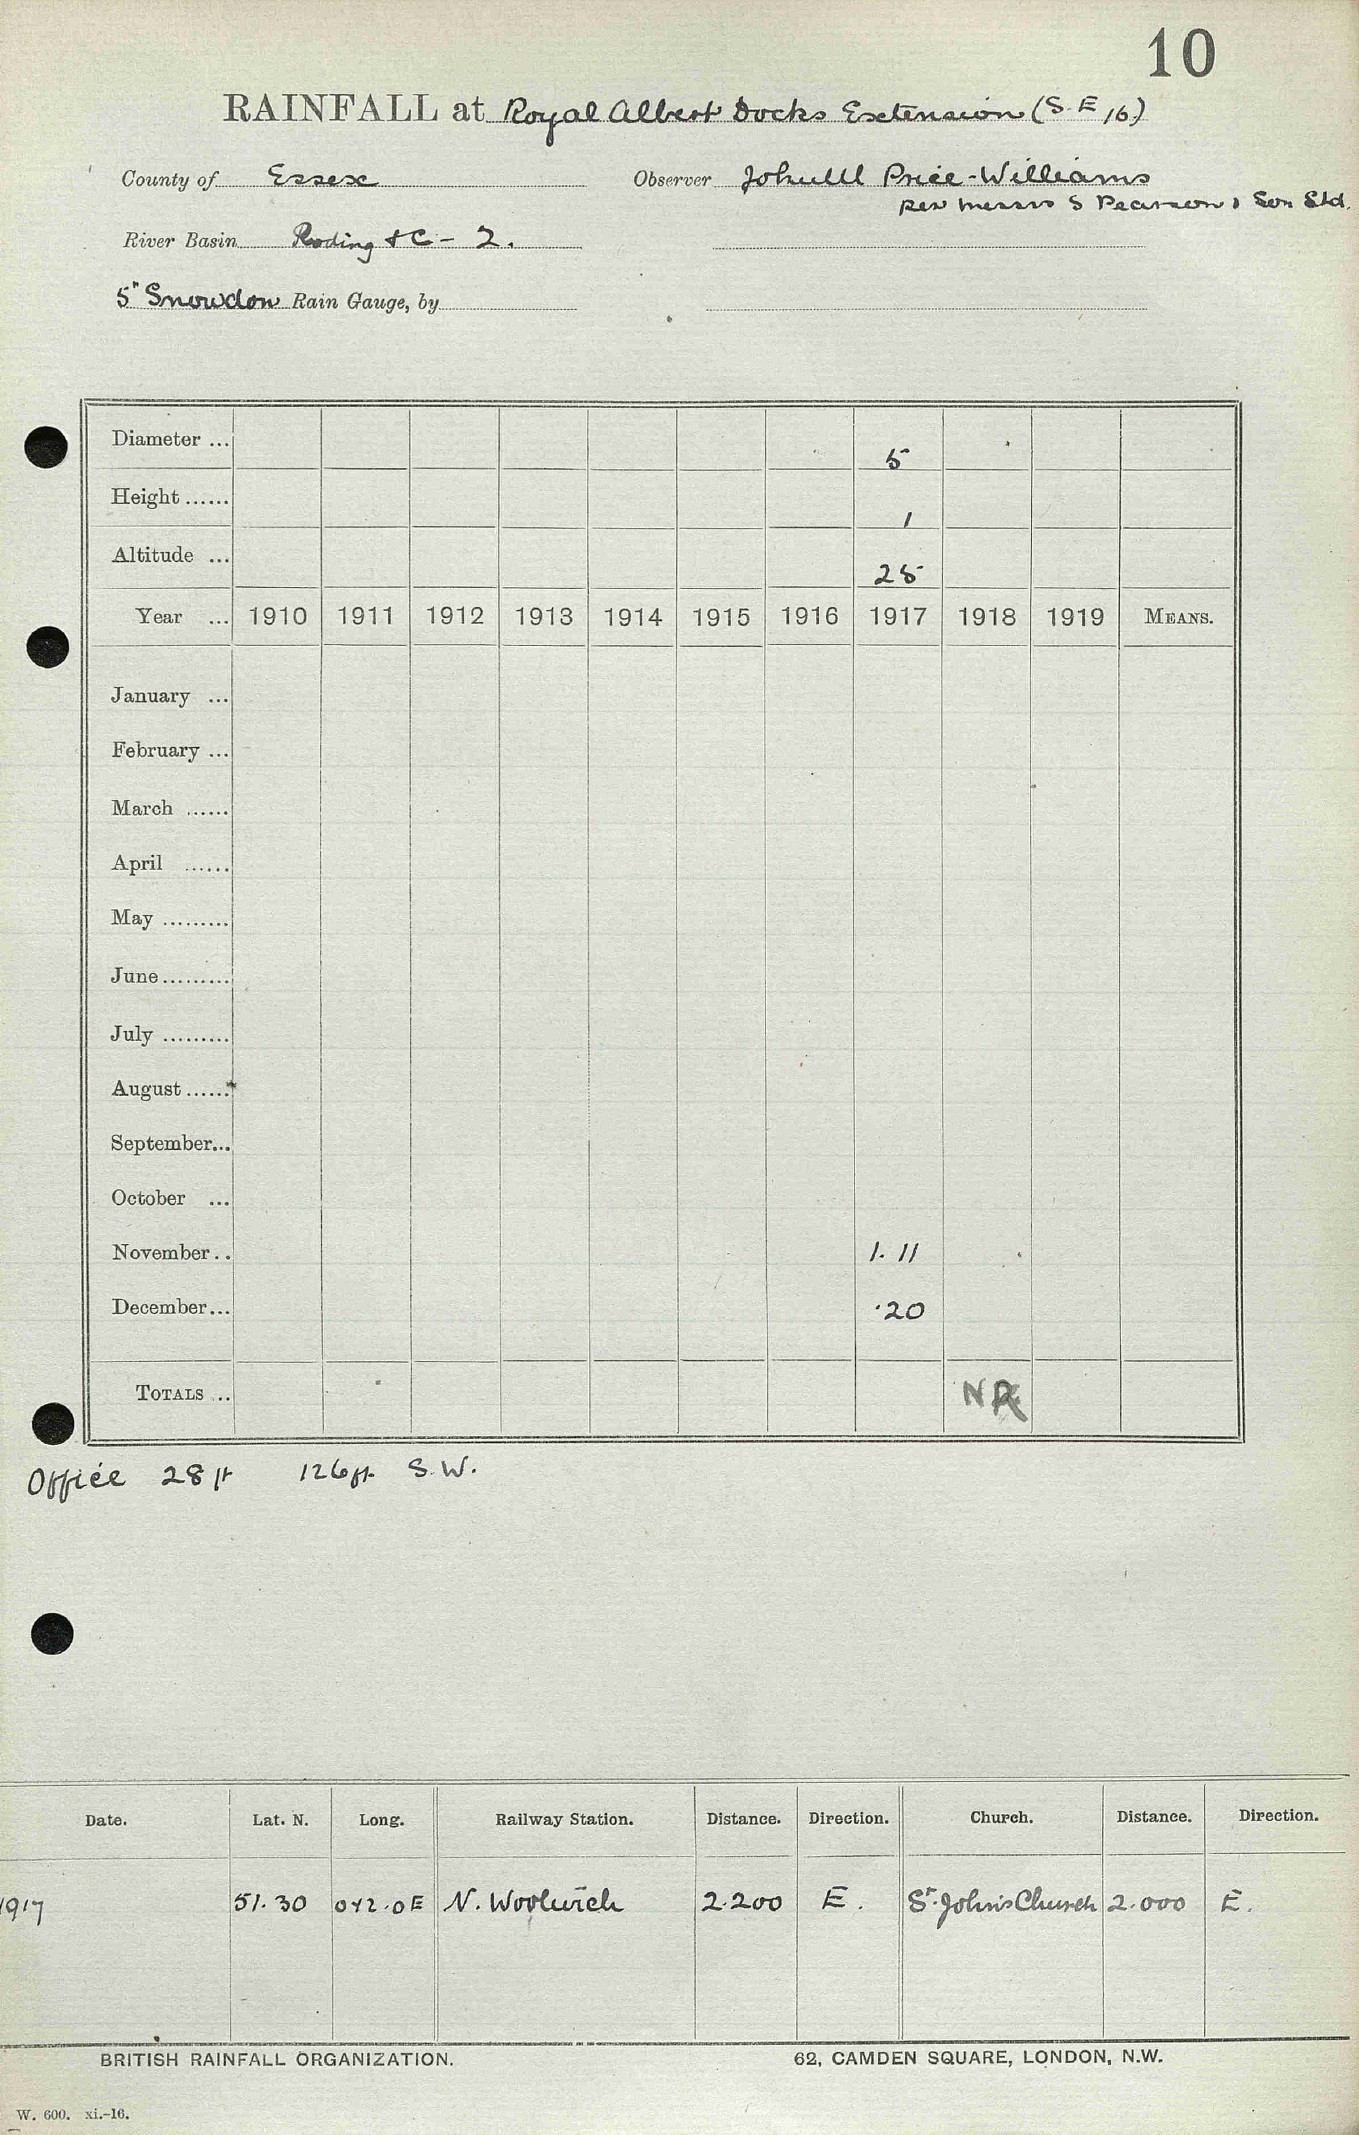 10
RAINFALL at Royal Albert Docks Extension (S.E 16)
County of Essex Observer Price-Williams
per Messrs S Pearson & Son Ltd.
River Basin Roding &C - 2.
5" Snowdon Rain Gauge, by
Diameter ... 5
Height ...... 1
Altitude ... 25
Year ... 1910 1911 1912 1913 1914 1915 1916 1917 1918 1919 MEANS.
January ...
February ...
March ......
April ......
May .........
June .........
July .........
August ......
September...
October ...
November.. 1.11
December... .20
TOTALS .. NR
Office 28 ft 126 ft. S.W.
Date. Lat. N. Long. Railway Station. Distance. Direction. Church. Distance. Direction.
1917 51.30 E N. Woolwich 2.200 E. St. John's Church 2.000 E.
BRITISH RAINFALL ORGANIZATION. 62, CAMDEN SQUARE, LONDON, N.W.
W. 600. xi.-16.